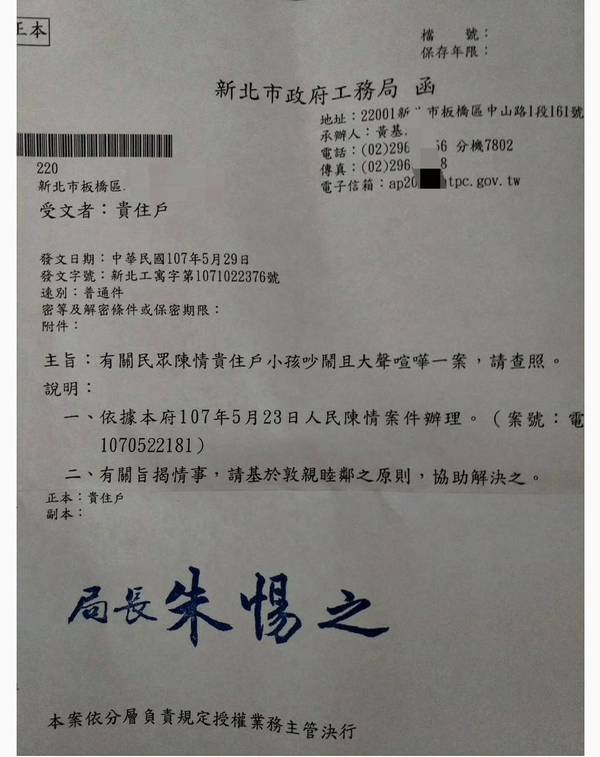 正本
檔　　號：
保存年限：
新北市政府工務局 函
地址：22001新 市板橋區中山路1段161號
承辦人：黃基
電話：(02)296 56 分機7802
傳真：(02)296 8
電子信箱：ap20 tpc.gov.tw
220
新北市板橋區
受文者：貴住戶
發文日期：中華民國107年5月29日
發文字號：新北工寓字第1071022376號
速別：普通件
密等及解密條件或保密期限：
附件：
主旨：有關民眾陳情貴住戶小孩吵鬧且大聲喧嘩一案，請查照。
說明：
一、依據本府107年5月23日人民陳情案件辦理。（案號：電
1070522181）
二、有關旨揭情事，請基於敦親睦鄰之原則，協助解決之。
正本：貴住戶
副本：
局長 朱惕之
本案依分層負責規定授權業務主管決行